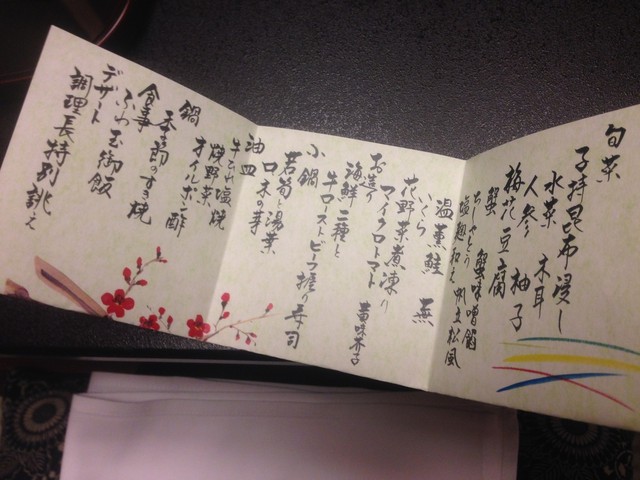 旬菜
子持昆布浸し
水菜 木耳
人参 柚子
梅花豆腐
蟹 蟹味噌餡
ちしゃとう
塩麹和え 帆立松風
温燻鮭 蕪
いくら
花野菜煮凍り
マイクロトマト
お造り
海鮮二種と
牛ローストビーフ握り寿司
小鍋
若筍と湯葉
木の芽
油皿
牛とれ塩焼
焼野菜
オイルポン酢
鍋
季節のすき焼
食事
ふわ玉御飯
デザート
調理長特別誂え